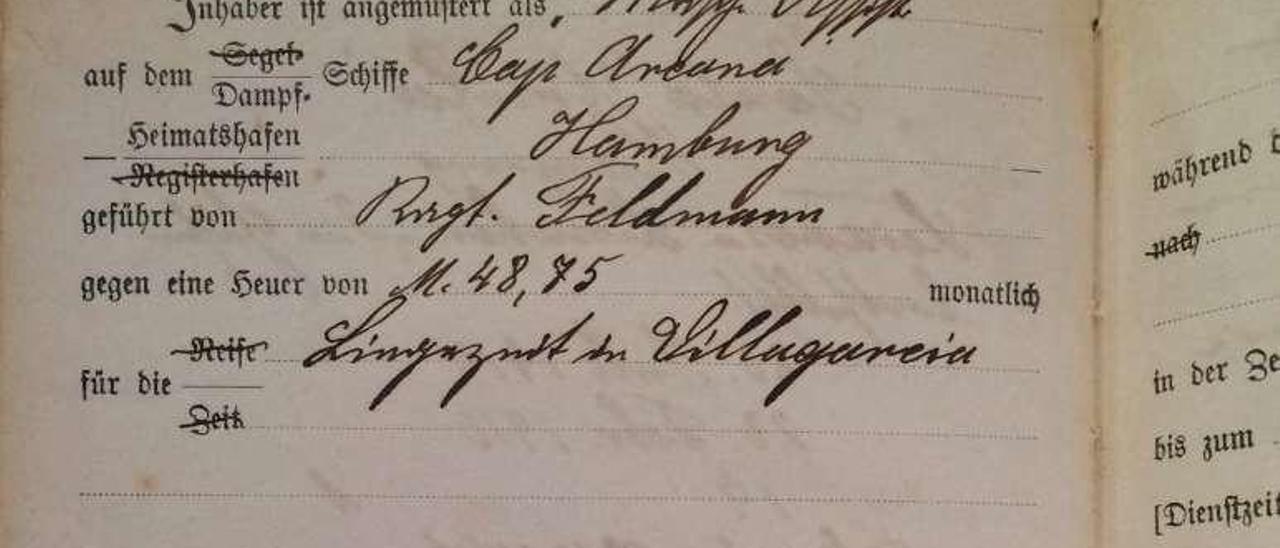 Inhaber ist angemustert als
auf dem Segel- Dampf- Schiffe Cap Arcona
Heimatshafen
Registerhafen Hamburg
geführt von Feldmann
gegen eine Heuer von M. 48,75 monatlich
für die Reise Liegezeit in Villagarcia
Zeit
während
nach
in der
bis zum
[Dienstzeit